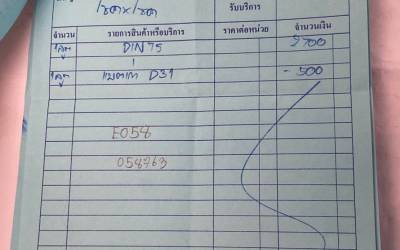 รับบริการ
จำนวน รายการสินค้าหรือบริการ ราคาต่อหน่วย จำนวนเงิน
1ลูก DIN 75 2700
1ลูก แบตเก่า D31 - 500
E058
058763